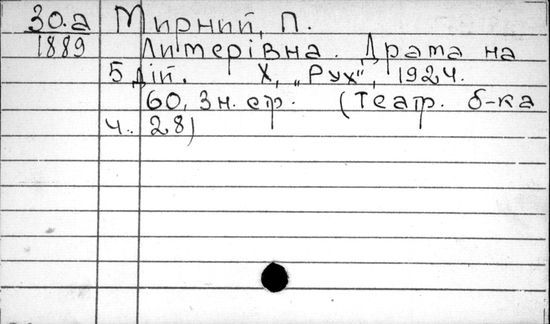 30.а Мирний, П.
1889 Лимерівна. Драма на
5 дій. Х, „Рух", 1924.
60, 3 н. стр. (Театр. б-ка
ч. 28)